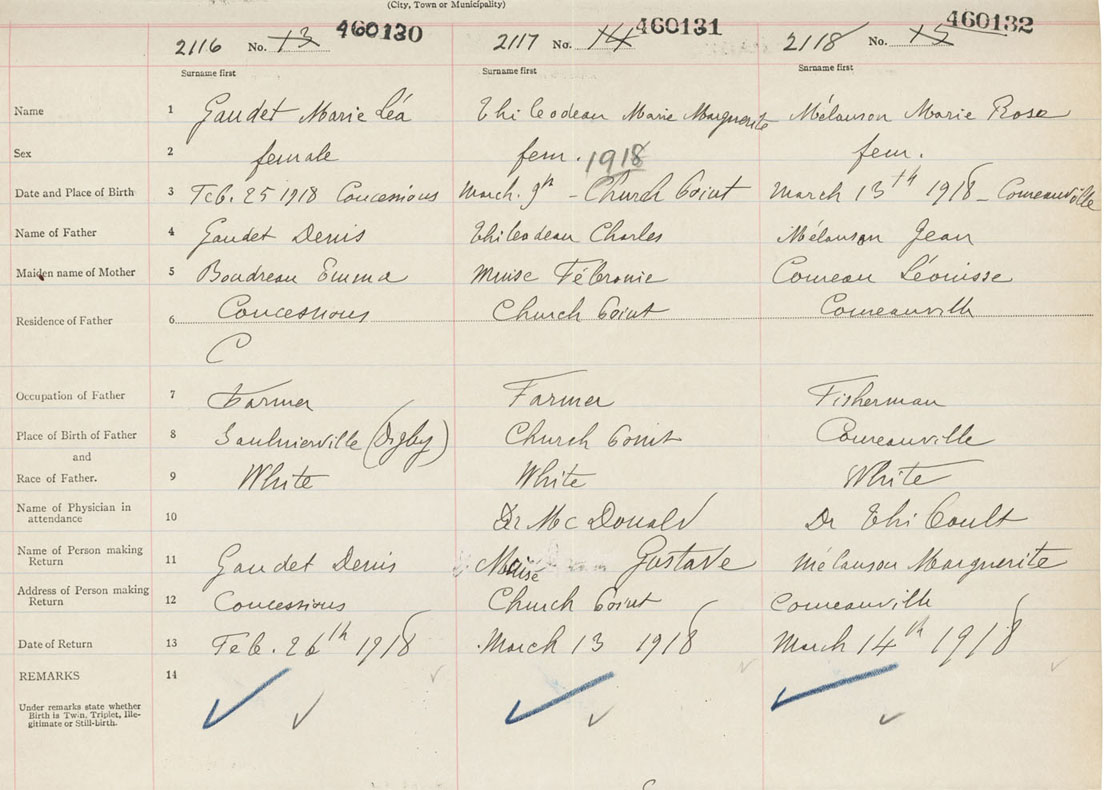 (City, Town or Municipality)
2116 No. 13 460130 2117 No. 14 460131 2118 No. 15 460132
Surname first Surname first Surname first
Name 1 Gaudet Marie Léa Thibodeau Marie Marguerite Mélanson Marie Rose
Sex 2 female fem. 1918 fem.
Date and Place of Birth 3 Feb. 25 1918 Concessions March. 9th - Church Point March 13th 1918 - Comeauville
Name of Father 4 Gaudet Denis Thibodeau Charles Mélanson Jean
Maiden name of Mother 5 Boudreau Emma Muise Fébronie Comeau Léonisse
Residence of Father 6 Concessions Church Point Comeauville
C
Occupation of Father 7 Farmer Farmer Fisherman
Place of Birth of Father 8 Saulnierville (Digby) Church Point Comeauville
and
Race of Father. 9 White White White
Name of Physician in
attendance 10 Dr McDonald Dr Thi Coult
Name of Person making
Return 11 Gaudet Denis Muise Gustave Mélanson Marguerite
Address of Person making
Return 12 Concessions Church Point Comeauville
Date of Return 13 Feb. 26th 1918 March 13 1918 March 14th 1918
REMARKS 14
Under remarks state whether
Birth is Twin, Triplet, Ille-
gitimate or Still-birth.